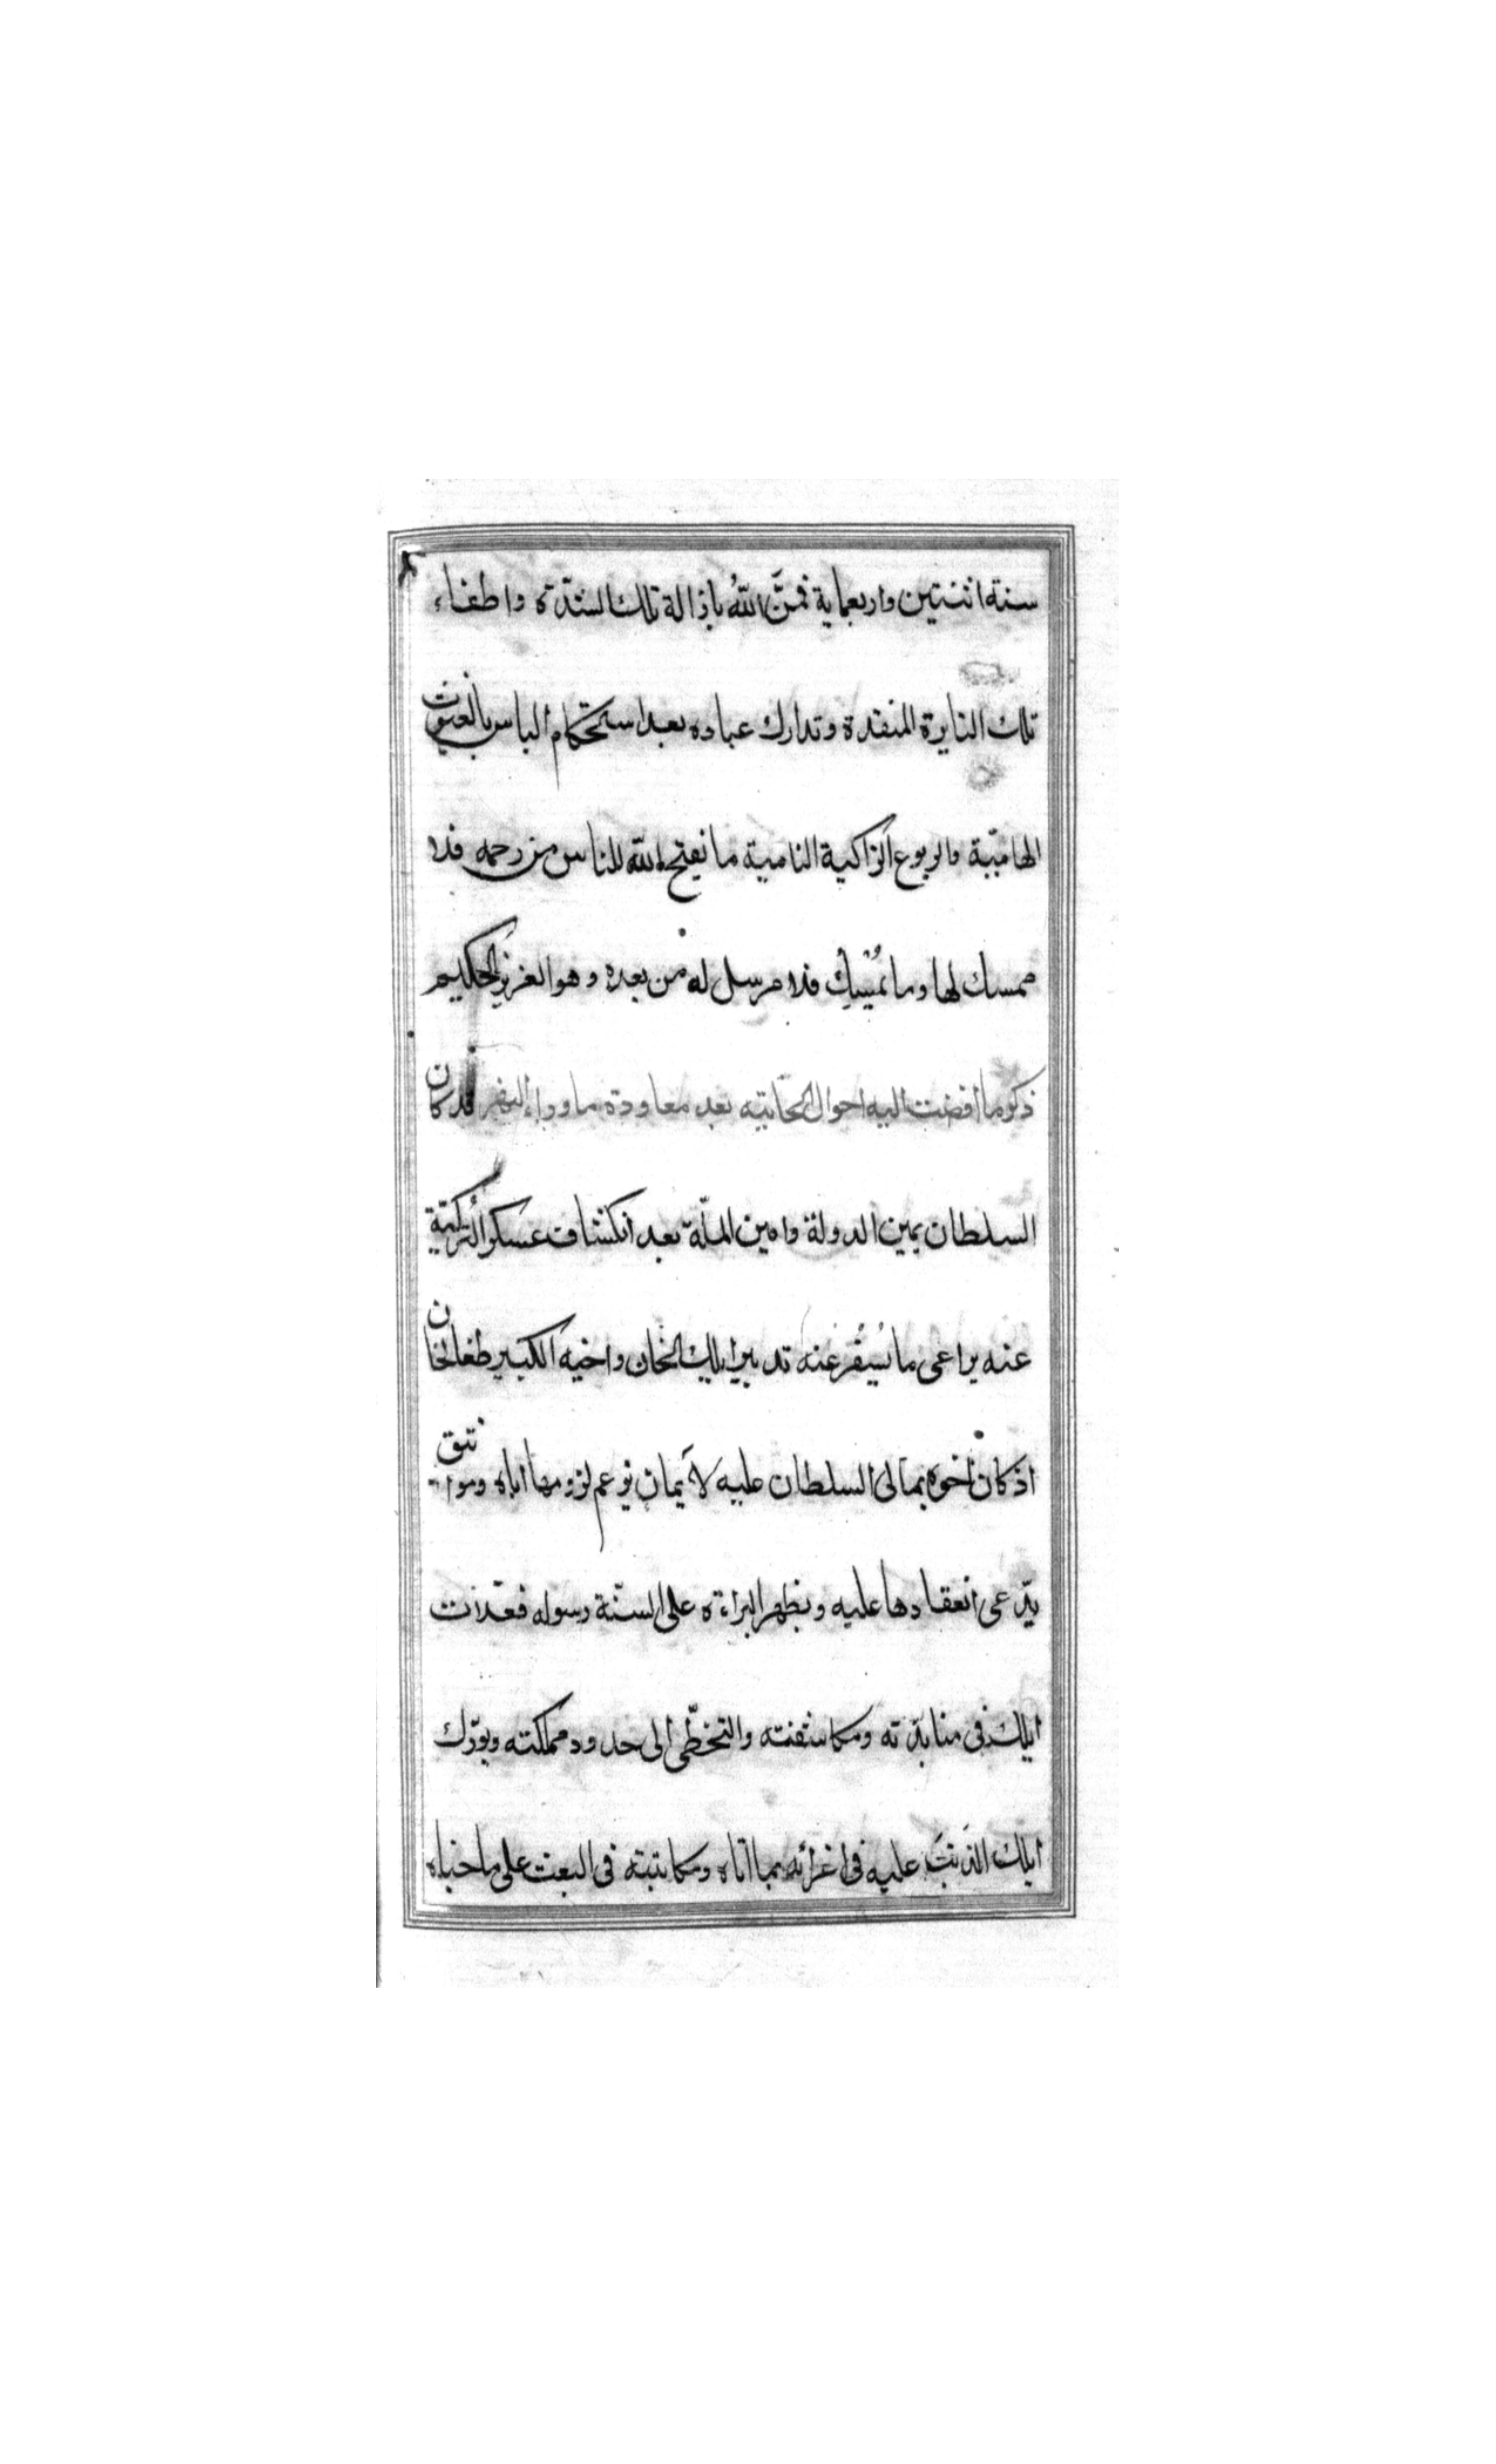 سنة اثنتين واربعماية فمنَّ اللهُ بازالة تلك الشدّة واطفاء
تلك النايرة المتقدة وتدارك عباده بعد استحكام الباس بالغيوث
الهاميّة والربوع الزاكية النامية ما يفتح الله للناس من رحمه فلا
ممسك لها وما يُمْسِك فلا مرسل له من بعده وهو العزيز الحكيم
ذكر ما أفضت اليه احوال الخانيّه بعد معاودة ما وراء النهر قد كان
السلطان يمين الدولة وامين الملّة بعد انكشاف عسكر التُركيّة
عنه يراعى ما يُسِفُر عنه تدبير ايلك الخان واخيه الكبير طغا نخان
اذ كان أخوه يمالى السلطان عليه لأيمان يزعم لزومها اياه ومواثيق
يدّعى انعقادها عليه ويظهر البراءة على السنّة رسوله فعّدات
ايلك فى منابذته ومكاشفته والتخطّى الى حدود مملكته ويورّك
ايلك الذنبَ عليه فى اغرائه بما اتاه ومكاتبته فى البعث على ما جناه